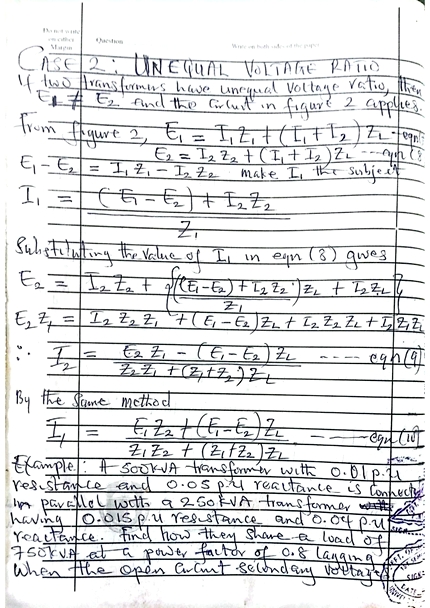 Do not write
on either
Margin
Question
Write on both sides of the paper
CASE 2: UNEQUAL VOLTAGE RATIO
If two transformers have unequal voltage ratio, then
E₁ ≠ E₂ and the circuit in figure 2 applies.
From figure 2, E₁ = I₁Z₁ + (I₁ + I₂) Z_L - eqn
E₂ = I₂Z₂ + (I₁ + I₂)Z_L --- eqn (8
E₁ - E₂ = I₁Z₁ - I₂Z₂ make I₁ the subject
I₁ = (E₁ - E₂) + I₂Z₂
Z₁
Substituting the value of I₁ in eqn (8) gives
E₂ = I₂Z₂ + {((E₁-E₂) + I₂Z₂) Z_L + I₂Z_L}
Z₁
E₂Z₁ = I₂Z₂Z₁ + (E₁-E₂)Z_L + I₂Z₂Z_L + I₂Z₁Z_L
∴ I₂ = E₂Z₁ - (E₁-E₂)Z_L ---- eqn (9)
Z₂Z₁ + (Z₁+Z₂)Z_L
By the same method
I₁ = E₁Z₂ + (E₁-E₂)Z_L ---- eqn (10
Z₁Z₂ + (Z₁+Z₂)Z_L
Example: A 500kVA transformer with 0.01 p.u
resistance and 0.05 p.u reactance is connected
in parallel with a 250kVA transformer
having 0.015 p.u resistance and 0.04 p.u
reactance. Find how they share a load of
750kVA at a power factor of 0.8 lagging
when the open circuit secondary voltage